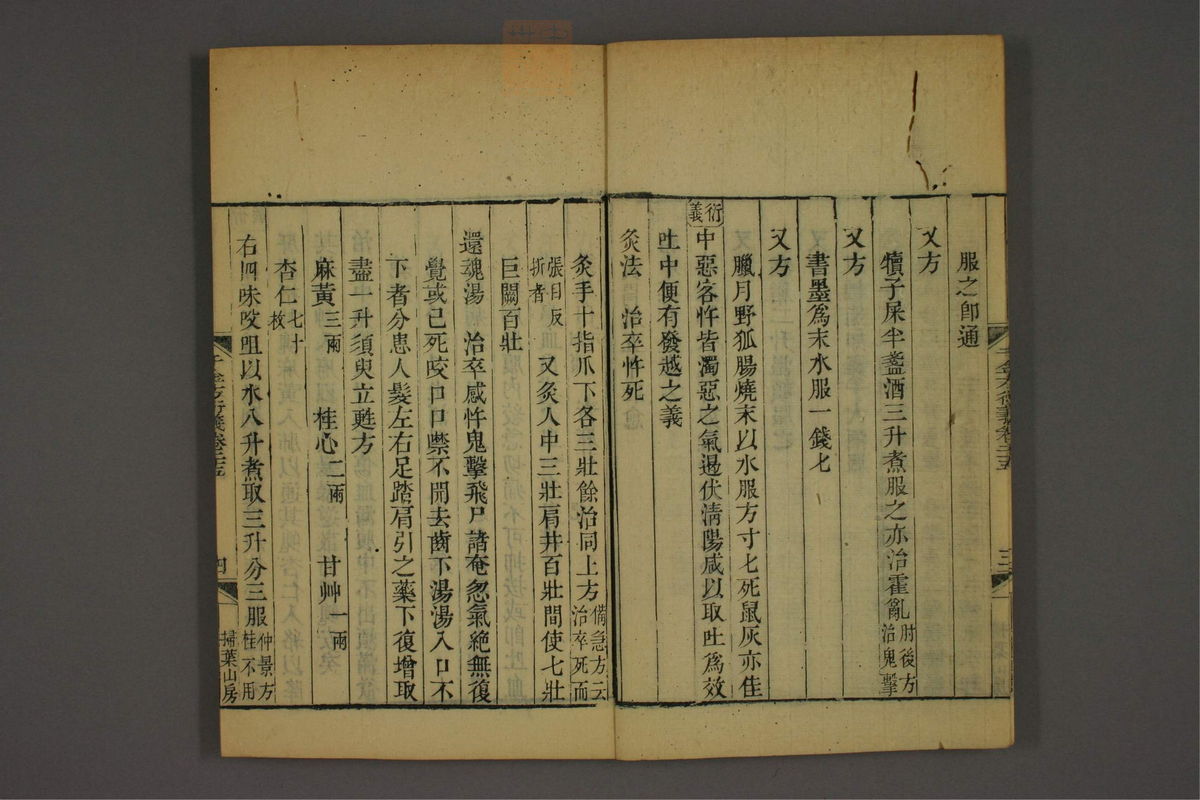 服之卽通
又方
犢子屎半盞酒三升煮服之亦治霍亂肘後方治鬼擊
又方
書墨爲末水服一錢七
又方
臘月野狐腸燒末以水服方寸七死鼠灰亦佳
衍義
中惡客忤皆濁惡之氣遏伏淸陽咸以取吐爲效
吐中便有發越之義
灸法 治卒忤死
灸手十指爪下各三壯餘治同上方備急方云治卒死而
張目反折者 又灸人中三壯肩井百壯間使七壯
巨闕百壯
還魂湯 治卒感忤鬼擊飛尸諸奄忽氣絕無復
覺或已死咬口口噤不開去齒下湯湯入口不
下者分患人髮左右足踏肩引之藥下復增取
盡一升須臾立甦方
麻黃三兩 桂心二兩 甘艸一兩
杏仁七十枚
右四味㕮咀以水八升煮取三升分三服仲景方桂不用
千金方衍義卷二十五
三
四
掃葉山房